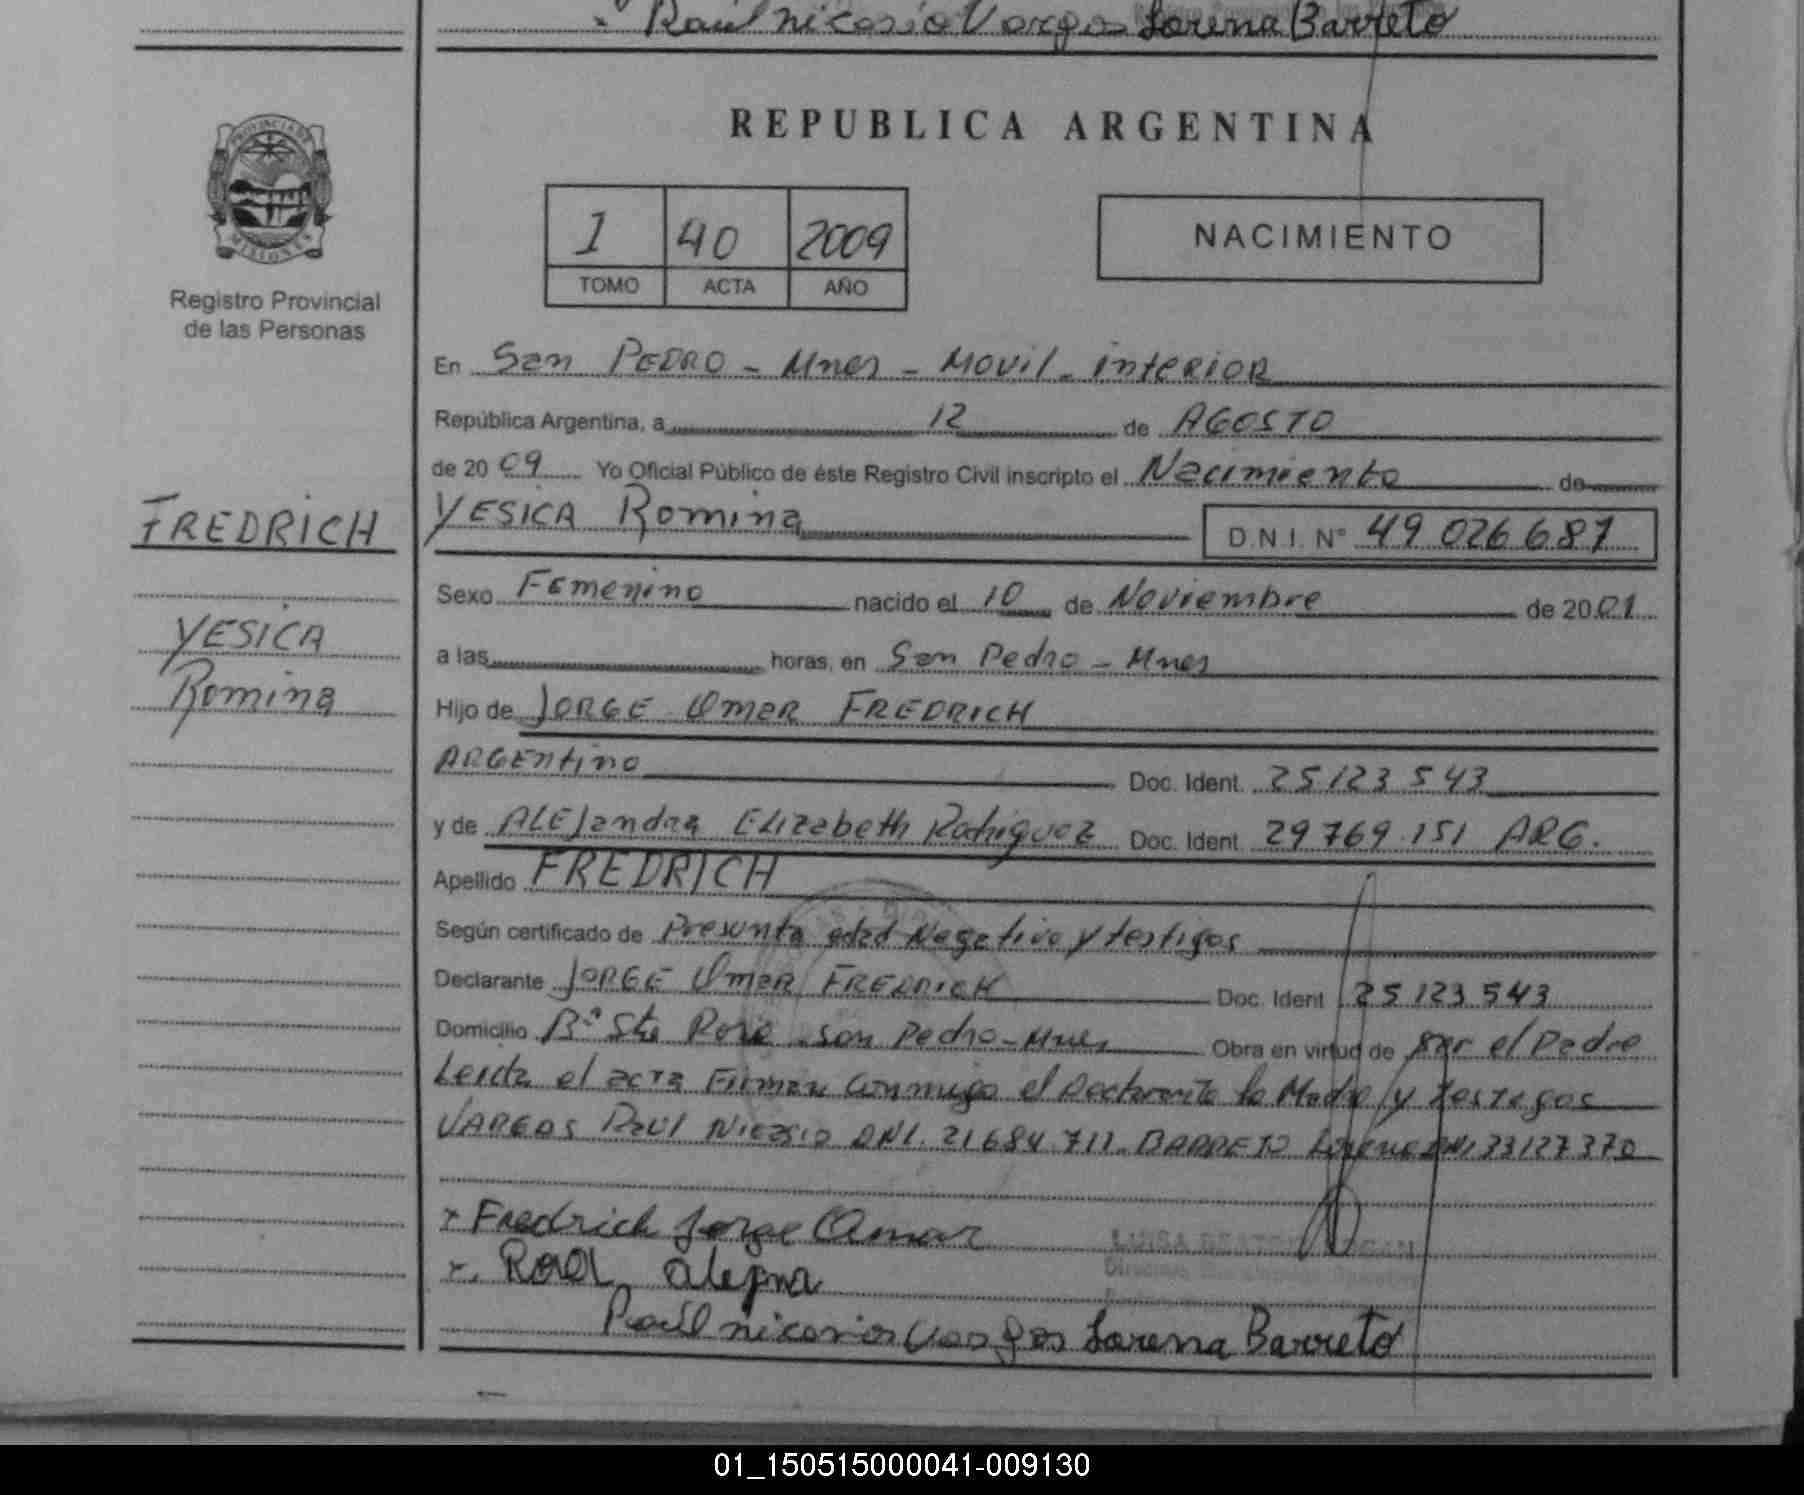 Raúl nicasio Vargas Lorena Barreto
REPUBLICA ARGENTINA
PROVINCIA DE
MISIONES
Registro Provincial
de las Personas
1 40 2009
TOMO ACTA AÑO
NACIMIENTO
En San PEDRO - Mnes - MOVIL - interior
República Argentina, a 12 de AGOSTO
de 20 09 Yo Oficial Público de éste Registro Civil inscripto el Nacimiento de
FREDRICH
YESICA Romina
YESICA Romina D.N.I. N° 49 026 687
Sexo Femenino nacido el 10 de Noviembre de 20 01
a las horas, en San Pedro - Mnes
Hijo de JORGE Omar FREDRICH
ARGENtino Doc. Ident. 25 123 543
y de ALEJandra Elizabeth Rodriguez Doc. Ident. 29 769 151 ARG.
Apellido FREDRICH
Según certificado de Presunta edad Negativo y testigos
Declarante JORGE Omar FREDRICH Doc. Ident 25 123 543
Domicilio Bº Sta Rosa San Pedro - Mnes Obra en virtud de ser el Padre
Leida el acta Firman Conmigo el Declarante la Madre y testigos
VARGAS Raul Nicasio DNI. 21 684 711 - BARRETO Lorena DNI 33127370
x Fredrich Jorge Omar
x. Rod alejna
Raúl nicasio Vargas Lorena Barreto
LUISA
01_150515000041-009130